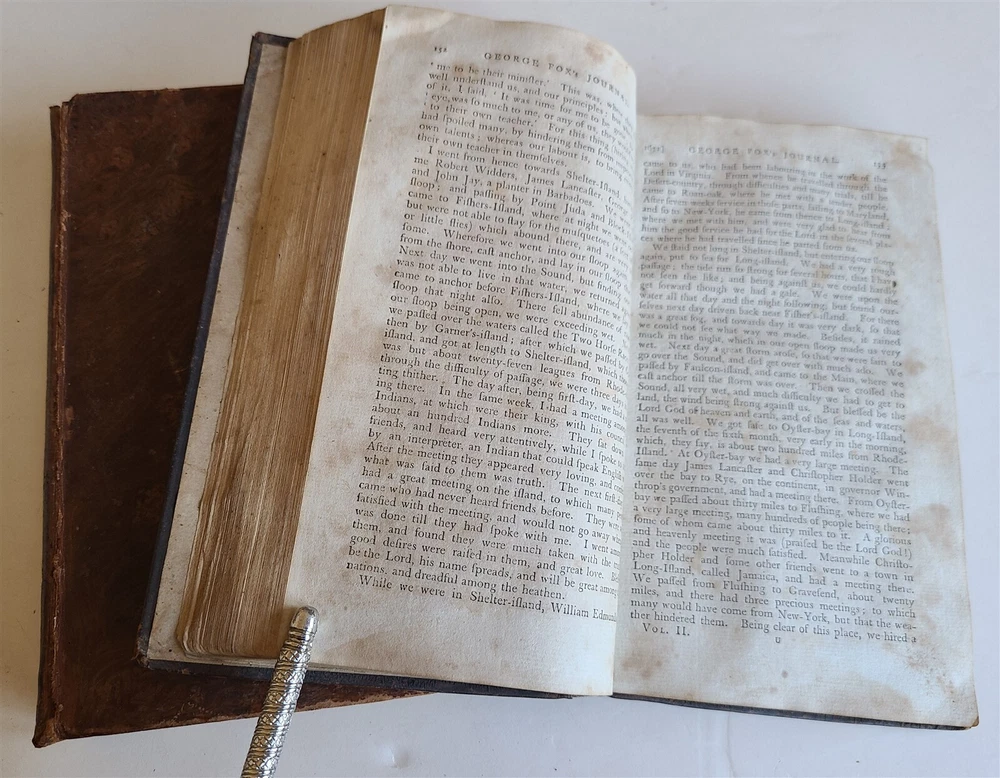 152 GEORGE FOX's JOURNAL
' me to be their miniſter.' This was, when they
well underſtand us, and our principles; but when
of it, I ſaid, ' It was time for me to be gone
' eye, was ſo much to me, or any of us, they would
' to their own teacher.' For this thing
had ſpoiled many, by hindering them from
own talents; whereas our labour is, to bring
their own teacher in themſelves.
I went from hence towards Shelter-Iſland,
me Robert Widders, James Lancaſter, George
and John Jay, a planter in Barbadoes. We
ſloop; and paſſing by Point Juda and Block
came to Fiſhers-Iſland, where at night we went
but were not able to ſtay for the muſquetoes
or little flies) which abound there, and are very
ſome. Wherefore we went into our ſloop again
from the ſhore, caſt anchor, and lay in our ſloop
Next day we went into the Sound, but finding
was not able to live in that water, we returned
came to anchor before Fiſhers-Iſland, where we
ſloop that night alſo. There fell abundance of
our ſloop being open, we were exceeding wet.
we paſſed over the waters called the Two Horſe
then by Garner's-iſland; after which we paſſed by
iſland, and got at length to Shelter-iſland, which
was but about twenty-ſeven leagues from Rhode
through the difficulty of paſſage, we were three days
ting thither. The day after, being firſt-day, we had a
ing there. In the ſame week, I had a meeting among
Indians, at which were their king, with his council
about an hundred Indians more. They ſat down
friends, and heard very attentively, while I ſpoke to
by an interpreter, an Indian that could ſpeak Engliſh
After the meeting they appeared very loving, and
what was ſaid to them was truth. The next firſt-
had a great meeting on the iſland, to which many
came who had never heard friends before. They were
ſatisfied with the meeting, and would not go away
was done till they had ſpoke with me. I went
them, and found they were much taken with the
good deſires were raiſed in them, and great love.
be the Lord, his name ſpreads, and will be great among
nations, and dreadful among the heathen.
While we were in Shelter-iſland, William Edmund
GEORGE FOX's JOURNAL. 153
came to us, who had been labouring in the work of the
Lord in Virginia. From whence he travelled through the
Deſert-country, through difficulties and many trials, till he
came to Roanoak, where he met with a tender people.
After ſeven weeks ſervice in thoſe parts, ſailing to Maryland,
and ſo to New-York, he came from thence to Long-iſland;
where we met with him, and were very glad to hear from
him the good ſervice he had for the Lord in the ſeveral pla-
ces where he had travelled ſince he parted from us.
We ſtaid not long in Shelter-iſland, but entering our ſloop
again, put to ſea for Long-iſland. We had a very rough
paſſage; the tide run ſo ſtrong for ſeveral hours, that I have
not ſeen the like; and being againſt us, we could hardly
get forward though we had a gale. We were upon the
water all that day and the night following, but found our-
ſelves next day driven back near Fiſher's-iſland. For there
was a great fog, and towards day it was very dark, ſo that
we could not ſee what way we made. Beſides, it rained
much in the night, which in our open ſloop made us very
wet. Next day a great ſtorm aroſe, ſo that we were fain to
go over the Sound, and did get over with much ado. We
paſſed by Faulcon-iſland, and came to the Main, where we
caſt anchor till the ſtorm was over. Then we croſſed the
Sound, all very wet, and much difficulty we had to get to
land, the wind being ſtrong againſt us. But bleſſed be the
Lord God of heaven and earth, and of the ſeas and waters
all was well. We got ſafe to Oyſter-bay in Long-Iſland,
the ſeventh of the ſixth month, very early in the morning,
which, they ſay, is about two hundred miles from Rhode-
Iſland. At Oyſter-bay we had a very large meeting. The
ſame day James Lancaſter and Chriſtopher Holder went
over the bay to Rye, on the continent, in governor Win-
throp's government, and had a meeting there. From Oyſter-
bay we paſſed about thirty miles to Fluſhing, where we had
a very large meeting, many hundreds of people being there;
ſome of whom came about thirty miles to it. A glorious
and heavenly meeting it was (praiſed be the Lord God!)
and the people were much ſatisfied. Meanwhile Chriſto-
pher Holder and ſome other friends went to a town in
Long-Iſland, called Jamaica, and had a meeting there.
We paſſed from Fluſhing to Graveſend, about twenty
miles, and there had three precious meetings; to which
many would have come from New-York, but that the wea-
ther hindered them. Being clear of this place, we hired a
VOL. II. U